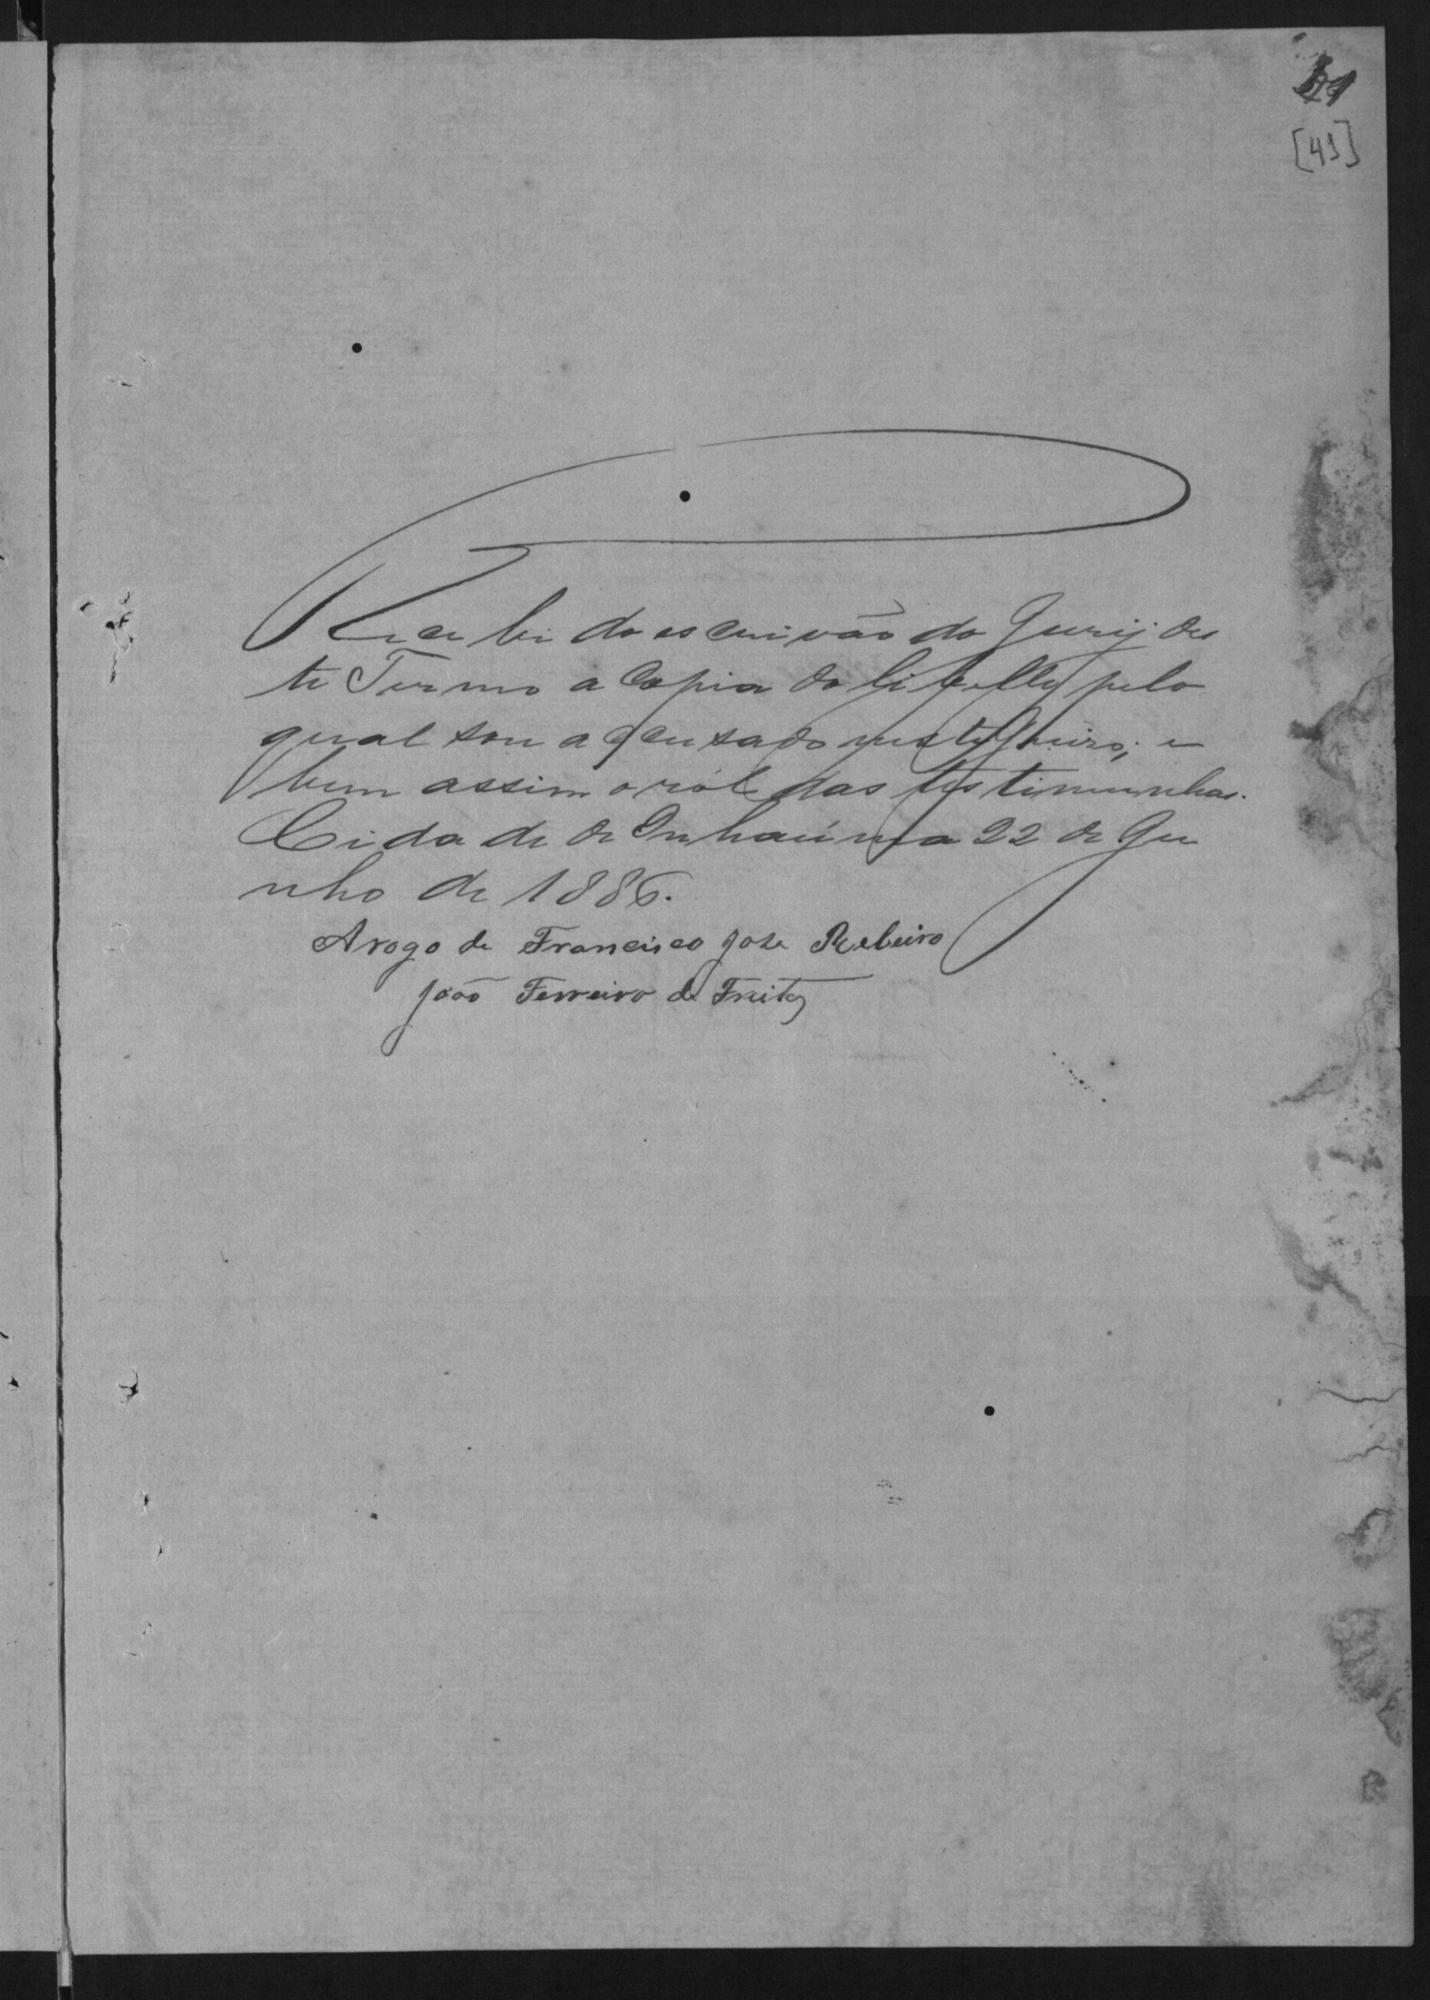 [41]
Recebi do escrivão do Jury des
te Termo a Copia do libello pelo
qual sou accusado neste Juizo; e
bem assim o ról das testimunhas.
Cidade de Inhaúma 22 de Ju
nho de 1886.
Arogo de Francisco Jose Rebeiro
João Ferreira de Freitas